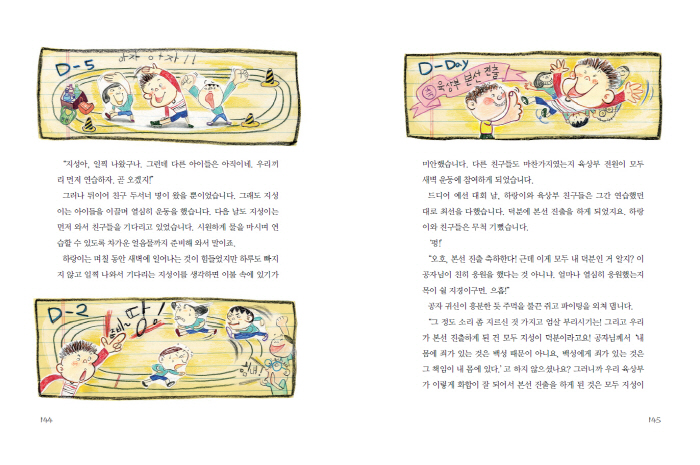 D-5
아자 아자!!
"지성아, 일찍 나왔구나. 그런데 다른 아이들은 아직이네. 우리끼
리 먼저 연습하자. 곧 오겠지!"
그러나 뒤이어 친구 두서너 명이 왔을 뿐이었습니다. 그래도 지성
이는 아이들을 이끌며 열심히 운동을 했습니다. 다음 날도 지성이는
먼저 와서 친구들을 기다리고 있었습니다. 시원하게 물을 마시며 연
습할 수 있도록 차가운 얼음물까지 준비해 와서 말이죠.
하랑이는 며칠 동안 새벽에 일어나는 것이 힘들었지만 하루도 빠지
지 않고 일찍 나와서 기다리는 지성이를 생각하면 이불 속에 있기가
D-2
땅!
힘내!
144
D-Day
축 육상부 본선 진출
미안했습니다. 다른 친구들도 마찬가지였는지 육상부 전원이 모두
새벽 운동에 참여하게 되었습니다.
드디어 예선 대회 날, 하랑이와 육상부 친구들은 그간 연습했던
대로 최선을 다했습니다. 덕분에 본선 진출을 하게 되었지요. 하랑
이와 친구들은 무척 기뻤습니다.
'펑!'
"오호, 본선 진출 축하한다! 근데 이게 모두 내 덕분인 거 알지? 이
공자님이 친히 응원을 했다는 것 아니냐. 얼마나 열심히 응원했는지
목이 쉴 지경이구먼, 으흠!"
공자 귀신이 흥분한 듯 주먹을 불끈 쥐고 파이팅을 외쳐 댑니다.
"그 정도 소리 좀 지르신 것 가지고 엄살 부리시기는! 그리고 우리
가 본선 진출하게 된 건 모두 지성이 덕분이라고요! 공자님께서 '내
몸에 죄가 있는 것은 백성 때문이 아니요, 백성에게 죄가 있는 것은
그 책임이 내 몸에 있다.'고 하지 않으셨나요? 그러니까 우리 육상부
가 이렇게 화합이 잘 되어서 본선 진출을 하게 된 것은 모두 지성이
145